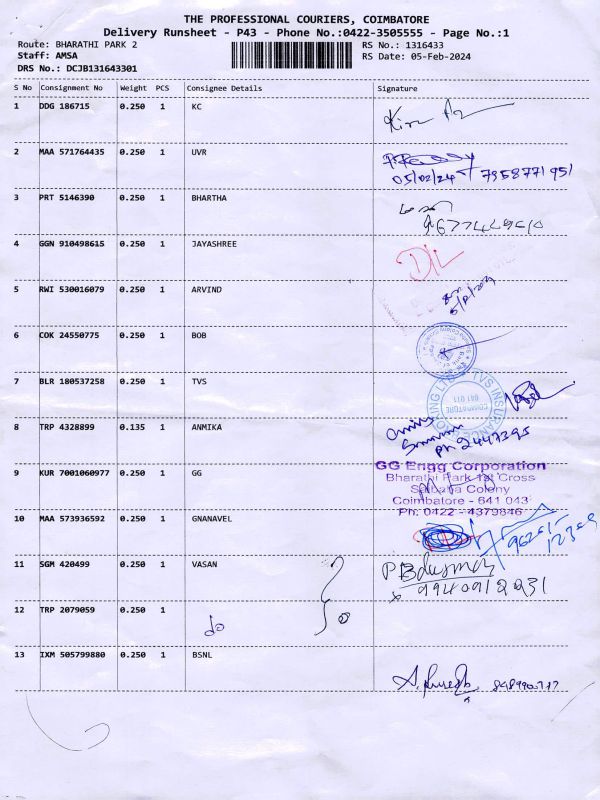 THE PROFESSIONAL COURIERS, COIMBATORE
Delivery Runsheet - P43 - Phone No.:0422-3505555 - Page No.:1
Route: BHARATHI PARK 2 RS No.: 1316433
Staff: AMSA RS Date: 05-Feb-2024
DRS No.: DCJB131643301
S No Consignment No Weight PCS Consignee Details Signature
1 DDG 186715 0.250 1 KC
2 MAA 571764435 0.250 1 UVR
05/02/24
3 PRT 5146390 0.250 1 BHARTHA
4 GGN 910498615 0.250 1 JAYASHREE
5 RWI 530016079 0.250 1 ARVIND
6 COK 24550775 0.250 1 BOB
7 BLR 180537258 0.250 1 TVS
TVS INSURANCE
COIMBATORE
641 011
8 TRP 4328899 0.135 1 ANMIKA
Ph 2447395
9 KUR 7001060977 0.250 1 GG
GG Engg Corporation
Bharathi Park 1st Cross
Saibaba Colony
Coimbatore - 641 043
Ph: 0422 - 4379846
10 MAA 573936592 0.250 1 GNANAVEL
11 SGM 420499 0.250 1 VASAN
9940912931
12 TRP 2079059 0.250 1
do
13 IXM 505799880 0.250 1 BSNL